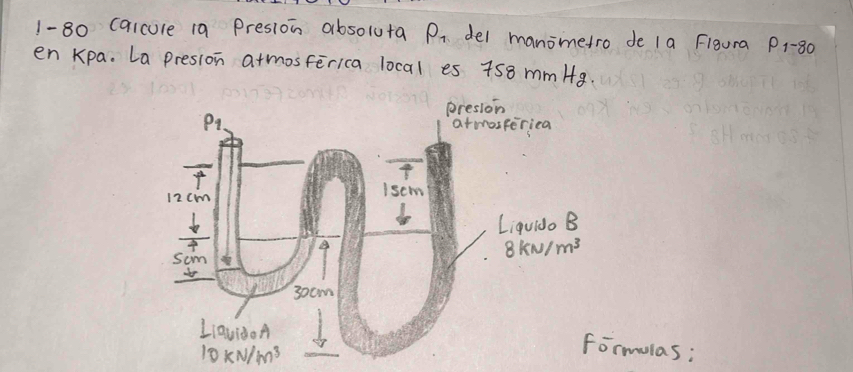 1-80 Calcule la Presión absoluta P₁ del manómetro de la Figura P1-80
en Kpa. La Presión atmosférica local es 758 mm Hg.
P1
presión
atmosférica
12cm
15cm
Liquido B
8 KN/m³
5cm
30cm
Liquido A
10 KN/m³
Formulas: